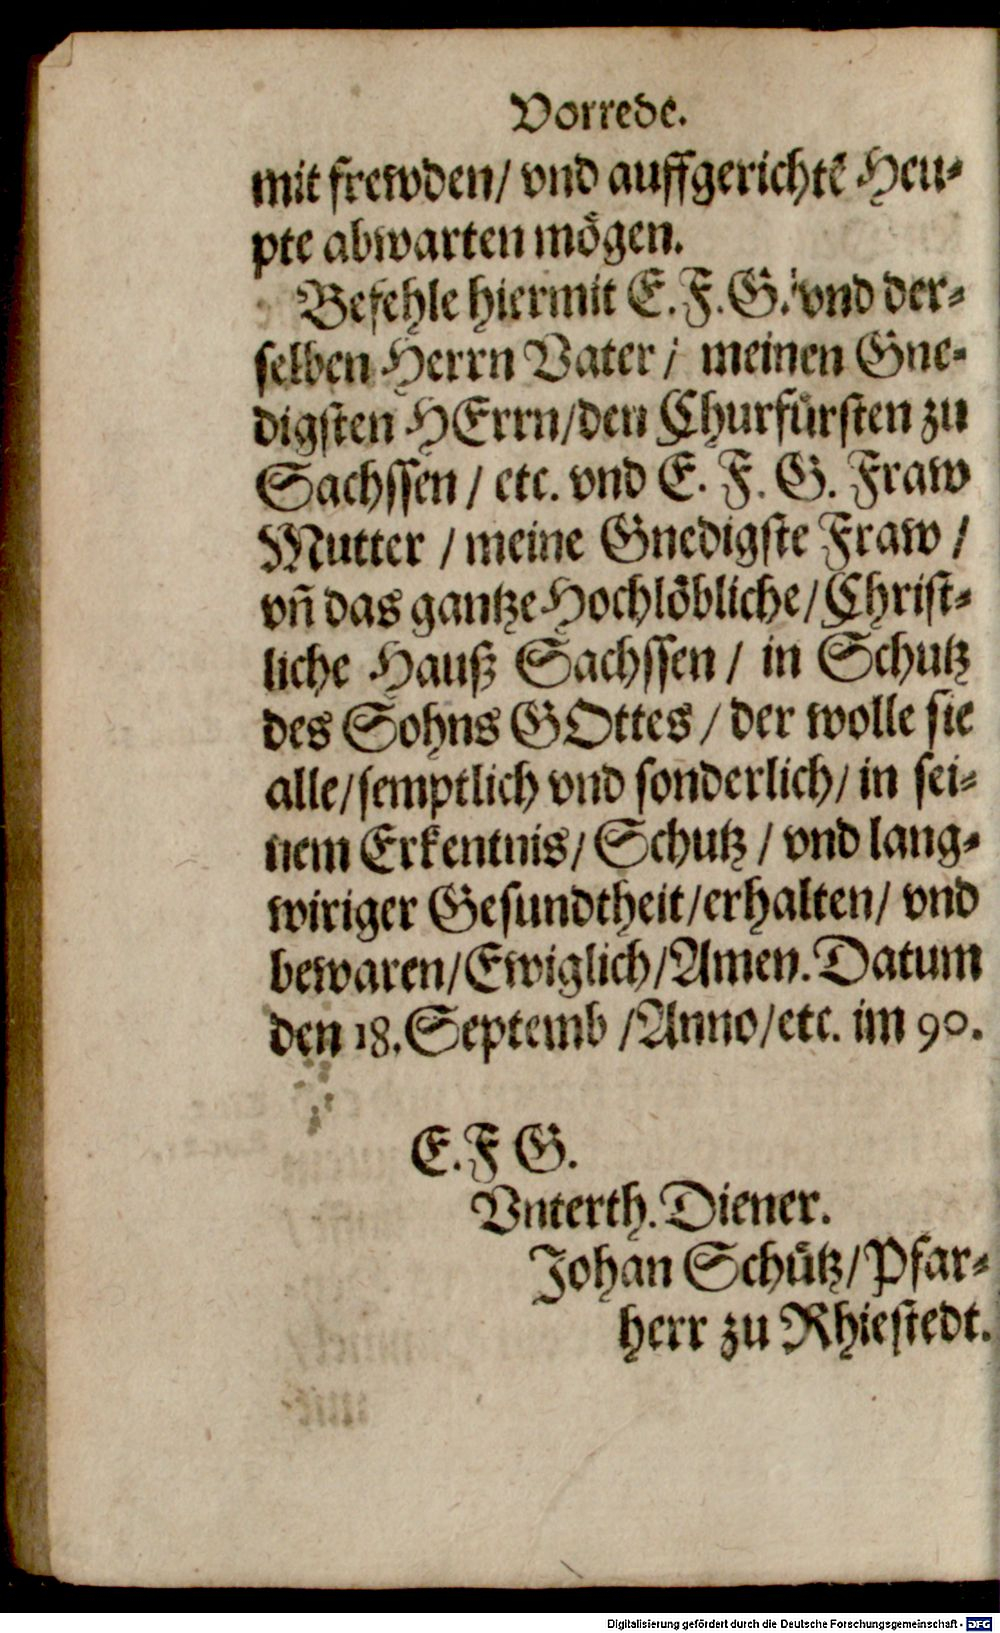 Vorrede.
mit frewden/ vnd auffgerichtē Heu⸗
pte abwarten mögen.
Befehle hiermit E. F. G. vnd der⸗
selben Herrn Vater / meinen Gne⸗
digsten HErrn/den Churfürsten zu
Sachssen / etc. vnd E. F. G. Fraw
Mutter / meine Gnedigste Fraw /
vn̄ das gantze Hochlöbliche/ Christ⸗
liche Hauß Sachssen / in Schutz
des Sohns GOttes / der wolle sie
alle/ semptlich vnd sonderlich/ in sei⸗
nem Erkentnis/ Schutz / vnd lang⸗
wiriger Gesundtheit/erhalten/ vnd
bewaren/Ewiglich/Amen. Datum
den 18. Septemb /Anno/etc. im 90.
E. F G.
Vnterth. Diener.
Johan Schütz/Pfar⸗
herr zu Rhiestedt.
Digitalisierung gefördert durch die Deutsche Forschungsgemeinschaft - DFG